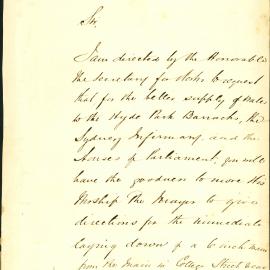 Sir,
I am directed by the Honorable
the Secretary for Works to request
that for the better supply of Water
to the Hyde Park Barracks, the
Sydney Infirmary and the
Houses of Parliament, you will
have the goodness to move His
Worship The Mayor to give
directions for the immediate
laying down of a 6 inch main
from the main in College Street